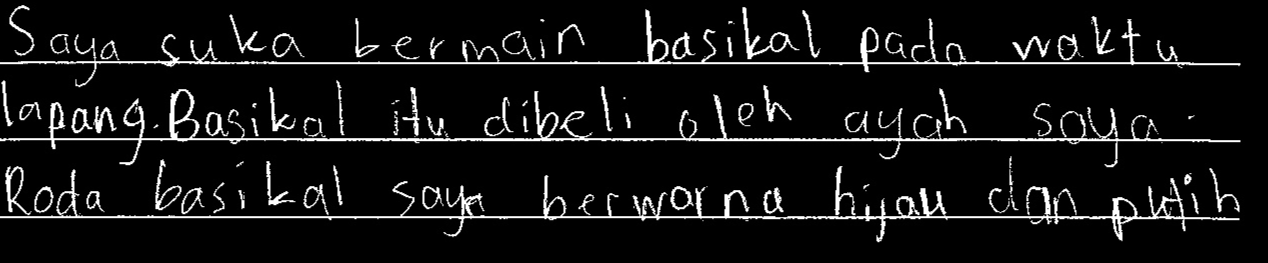 Saya suka bermain basikal pada waktu
lapang. Basikal itu dibeli oleh ayah saya.
Roda basikal saya berwarna hijau dan putih